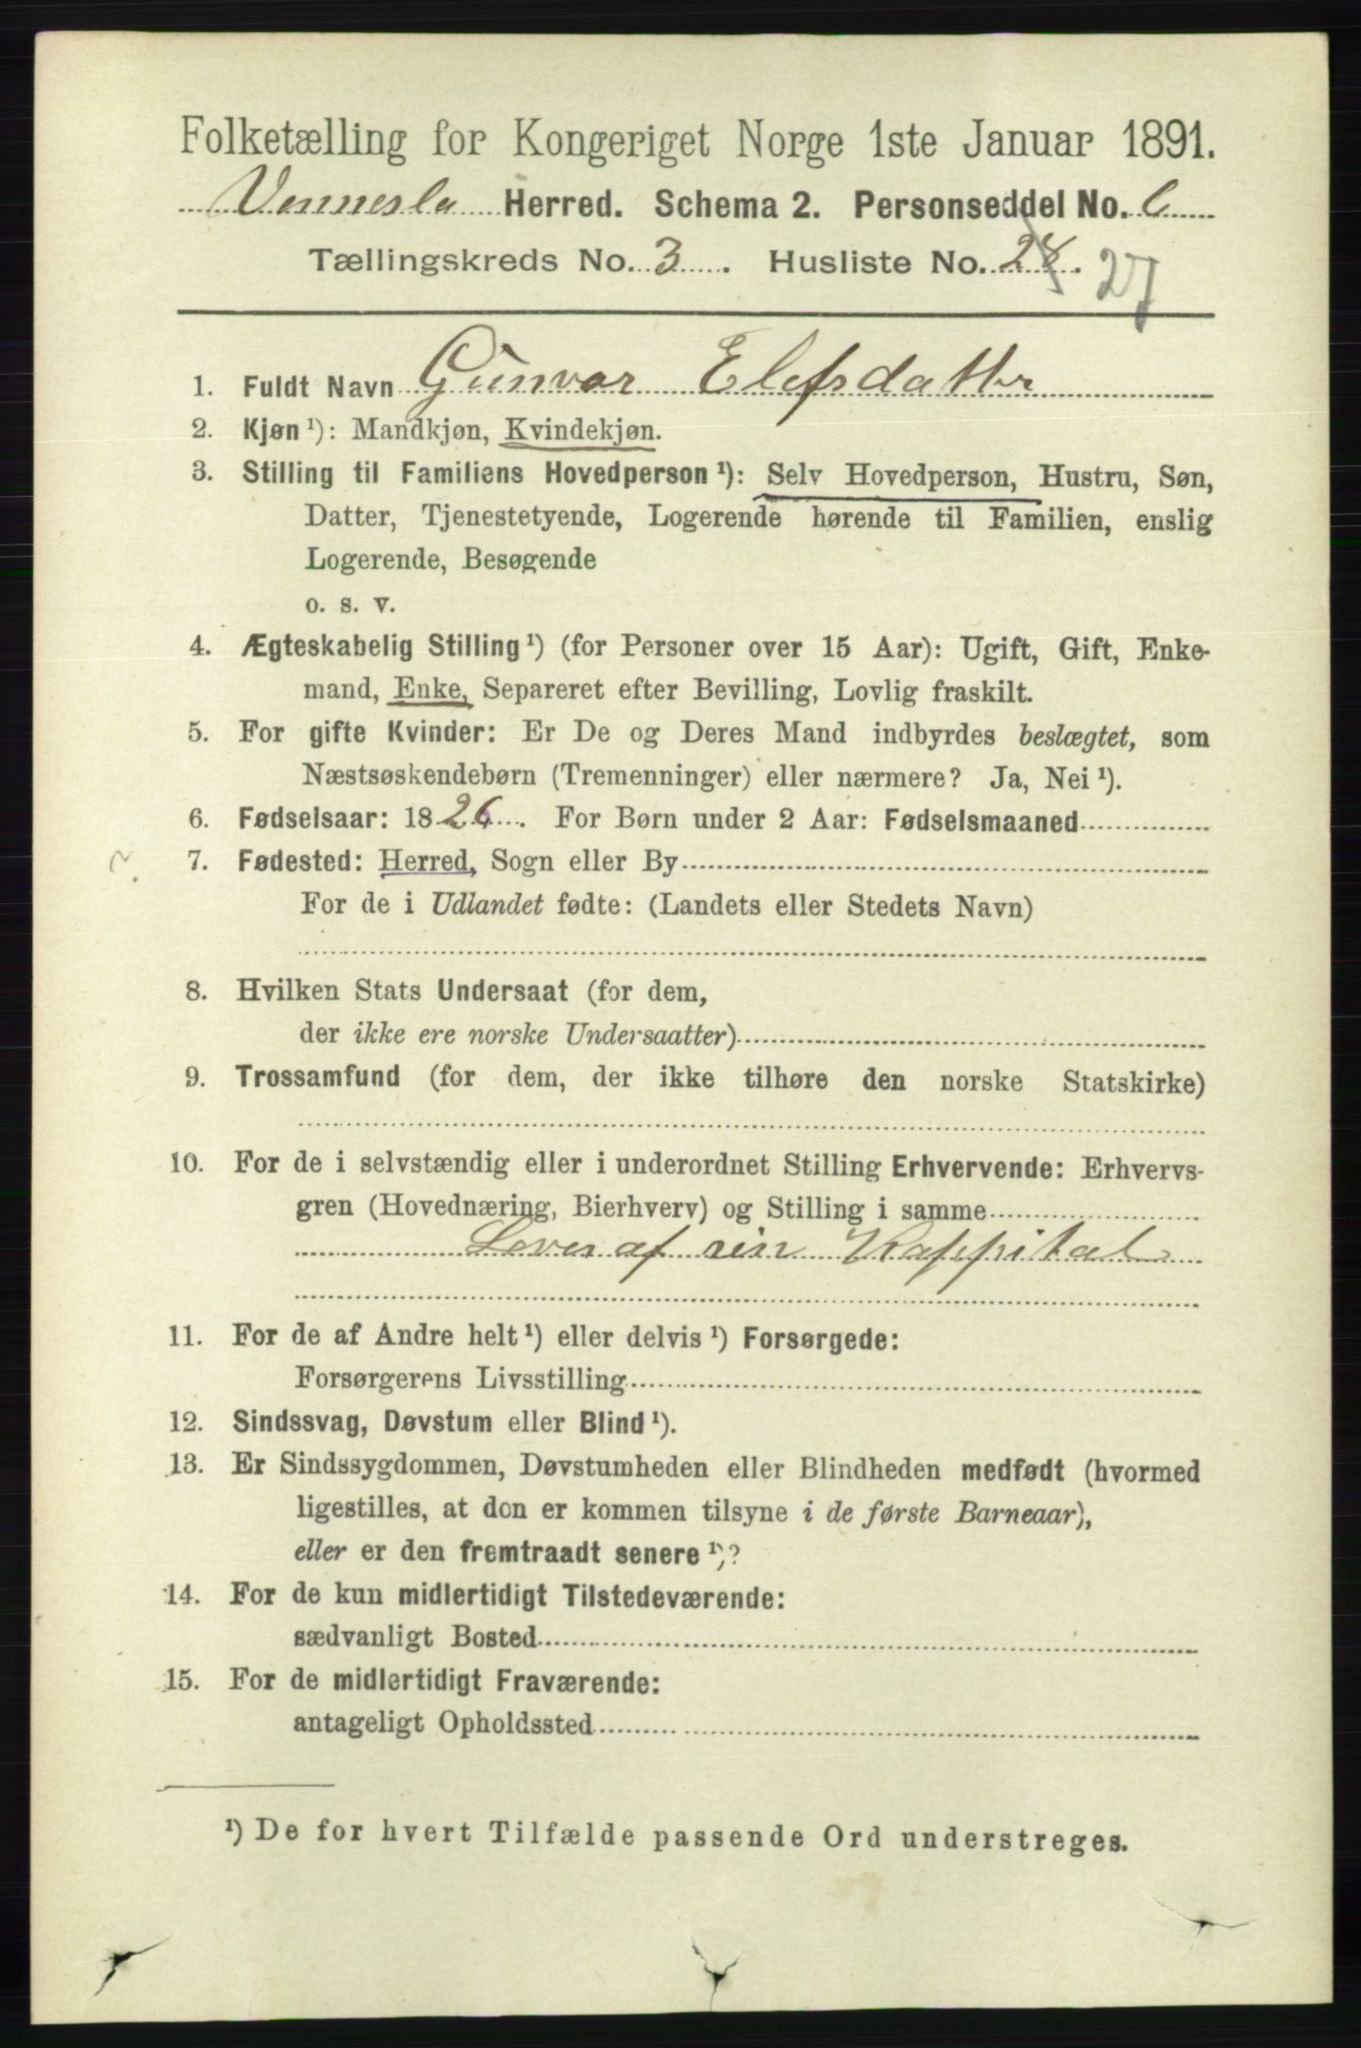 Folketælling for Kongeriget Norge 1ste Januar 1891.
Vennesla Herred. Schema 2. Personseddel No. 6
Tællingskreds No. 3. Husliste No. 28. 27
1. Fuldt Navn Gunvor Elefsdatter
2. Kjøn ¹): Mandkjøn, Kvindekjøn.
3. Stilling til Familiens Hovedperson ¹): Selv Hovedperson, Hustru, Søn,
Datter, Tjenestetyende, Logerende hørende til Familien, enslig
Logerende, Besøgende
o. s. v.
4. Ægteskabelig Stilling ¹) (for Personer over 15 Aar): Ugift, Gift, Enke-
mand, Enke, Separeret efter Bevilling, Lovlig fraskilt.
5. For gifte Kvinder: Er De og Deres Mand indbyrdes beslægtet, som
Næstsøskendebørn (Tremenninger) eller nærmere? Ja, Nei ¹).
6. Fødselsaar: 1826. For Børn under 2 Aar: Fødselsmaaned
7. Fødested: Herred, Sogn eller By
For de i Udlandet fødte: (Landets eller Stedets Navn)
8. Hvilken Stats Undersaat (for dem,
der ikke ere norske Undersaatter)
9. Trossamfund (for dem, der ikke tilhøre den norske Statskirke)
10. For de i selvstændig eller i underordnet Stilling Erhvervende: Erhvervs-
gren (Hovednæring, Bierhverv) og Stilling i samme
Lever af sin Kappital
11. For de af Andre helt ¹) eller delvis ¹) Forsørgede:
Forsørgerens Livsstilling
12. Sindssvag, Døvstum eller Blind ¹).
13. Er Sindssygdommen, Døvstumheden eller Blindheden medfødt (hvormed
ligestilles, at den er kommen tilsyne i de første Barneaar),
eller er den fremtraadt senere ¹)?
14. For de kun midlertidigt Tilstedeværende:
sædvanligt Bosted
15. For de midlertidigt Fraværende:
antageligt Opholdssted
¹) De for hvert Tilfælde passende Ord understreges.